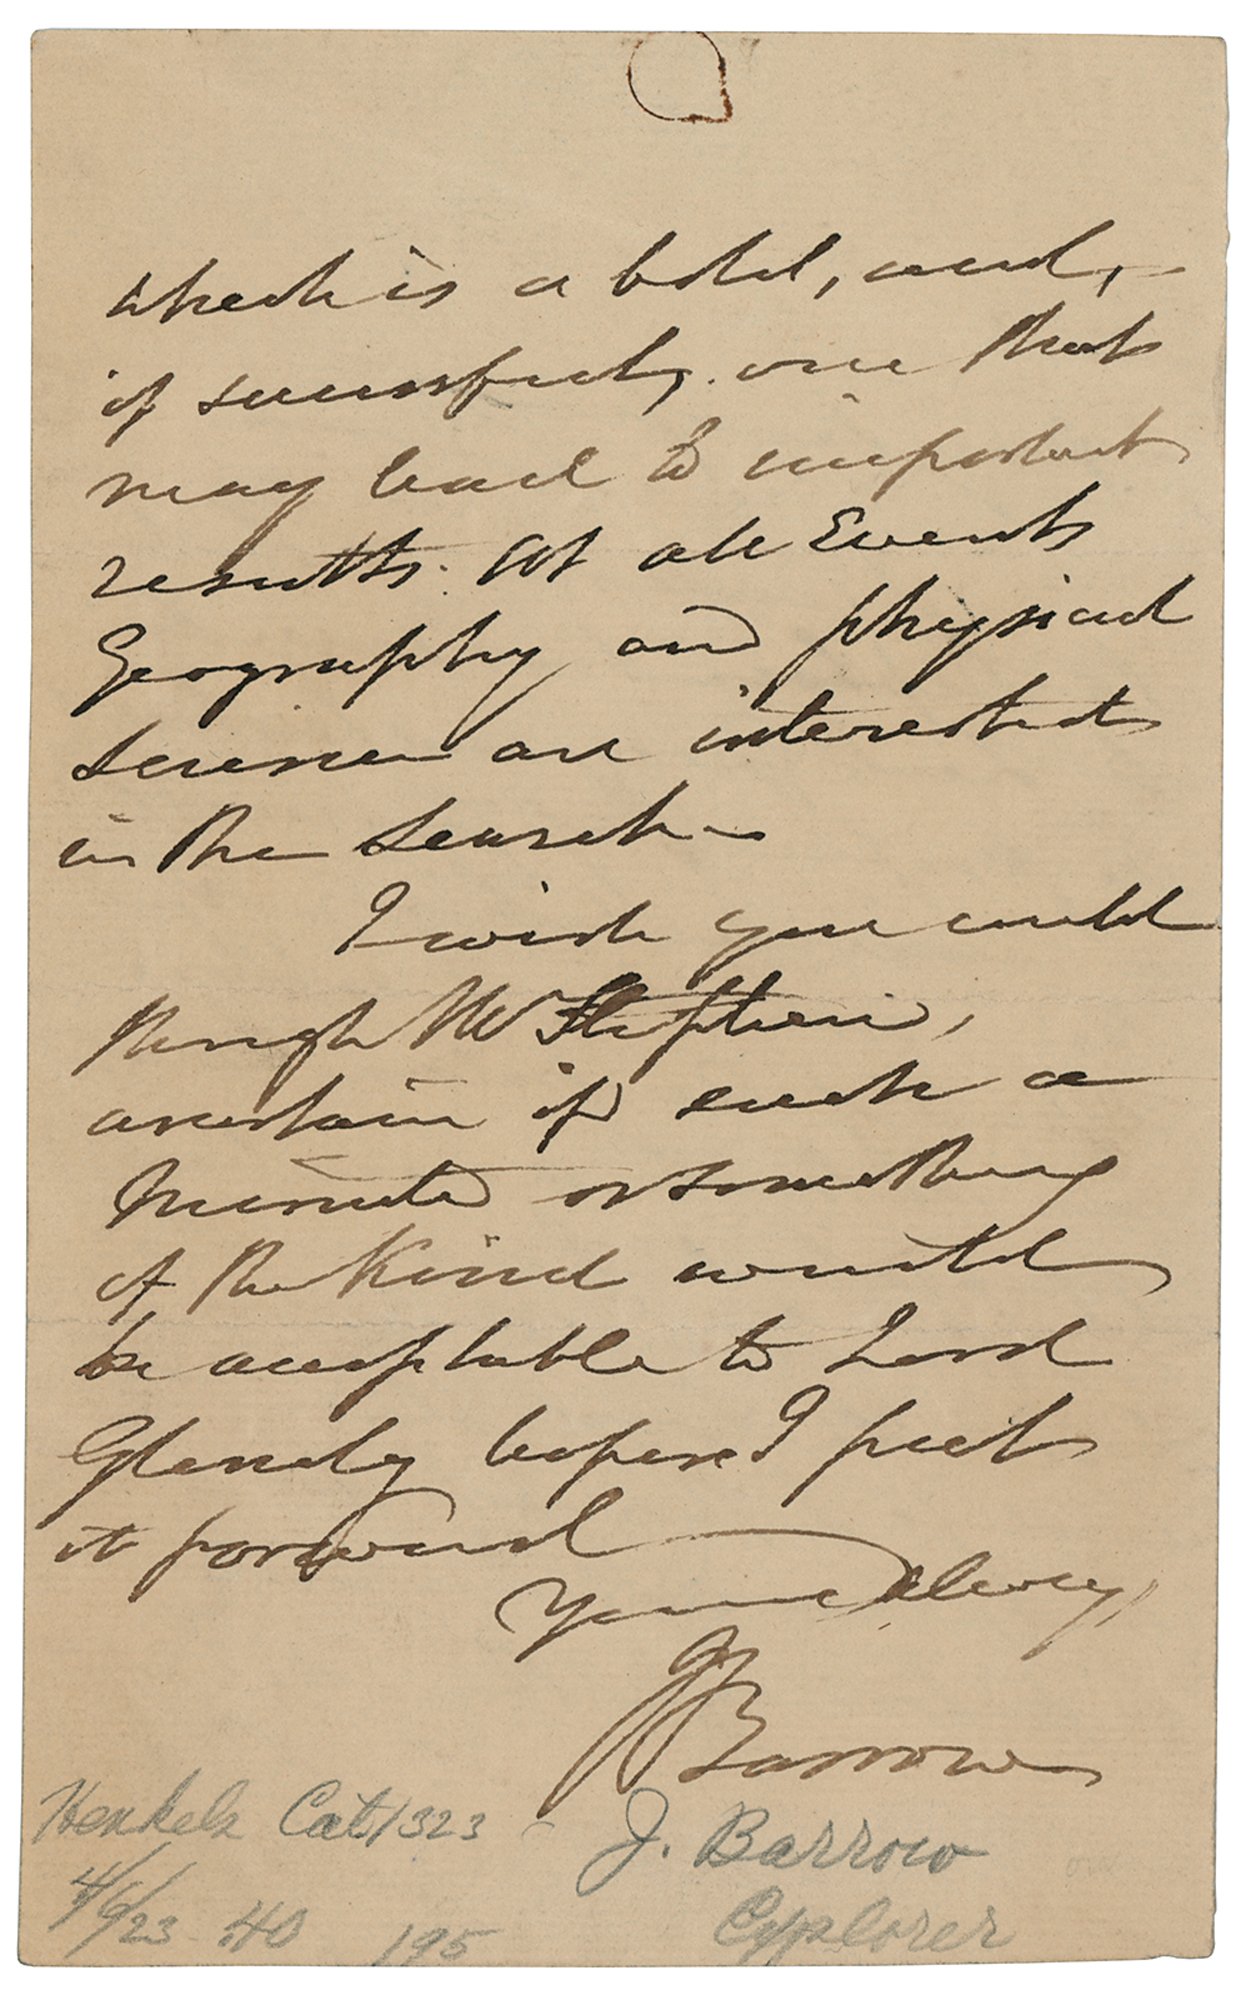 which is a bold, and, -
if successful, one that
may lead to important
results. At all Events
Geography and physical
Science are interested
in the Search -
I wish you could
through Mr Stephen,
ascertain if such a
Minute or something
of the Kind would
be acceptable to Lord
Glenelg before I put
it forward
Yours
J Barrow
Henkels Cat 1323 - J. Barrow
4/6/23 40 195 Explorer